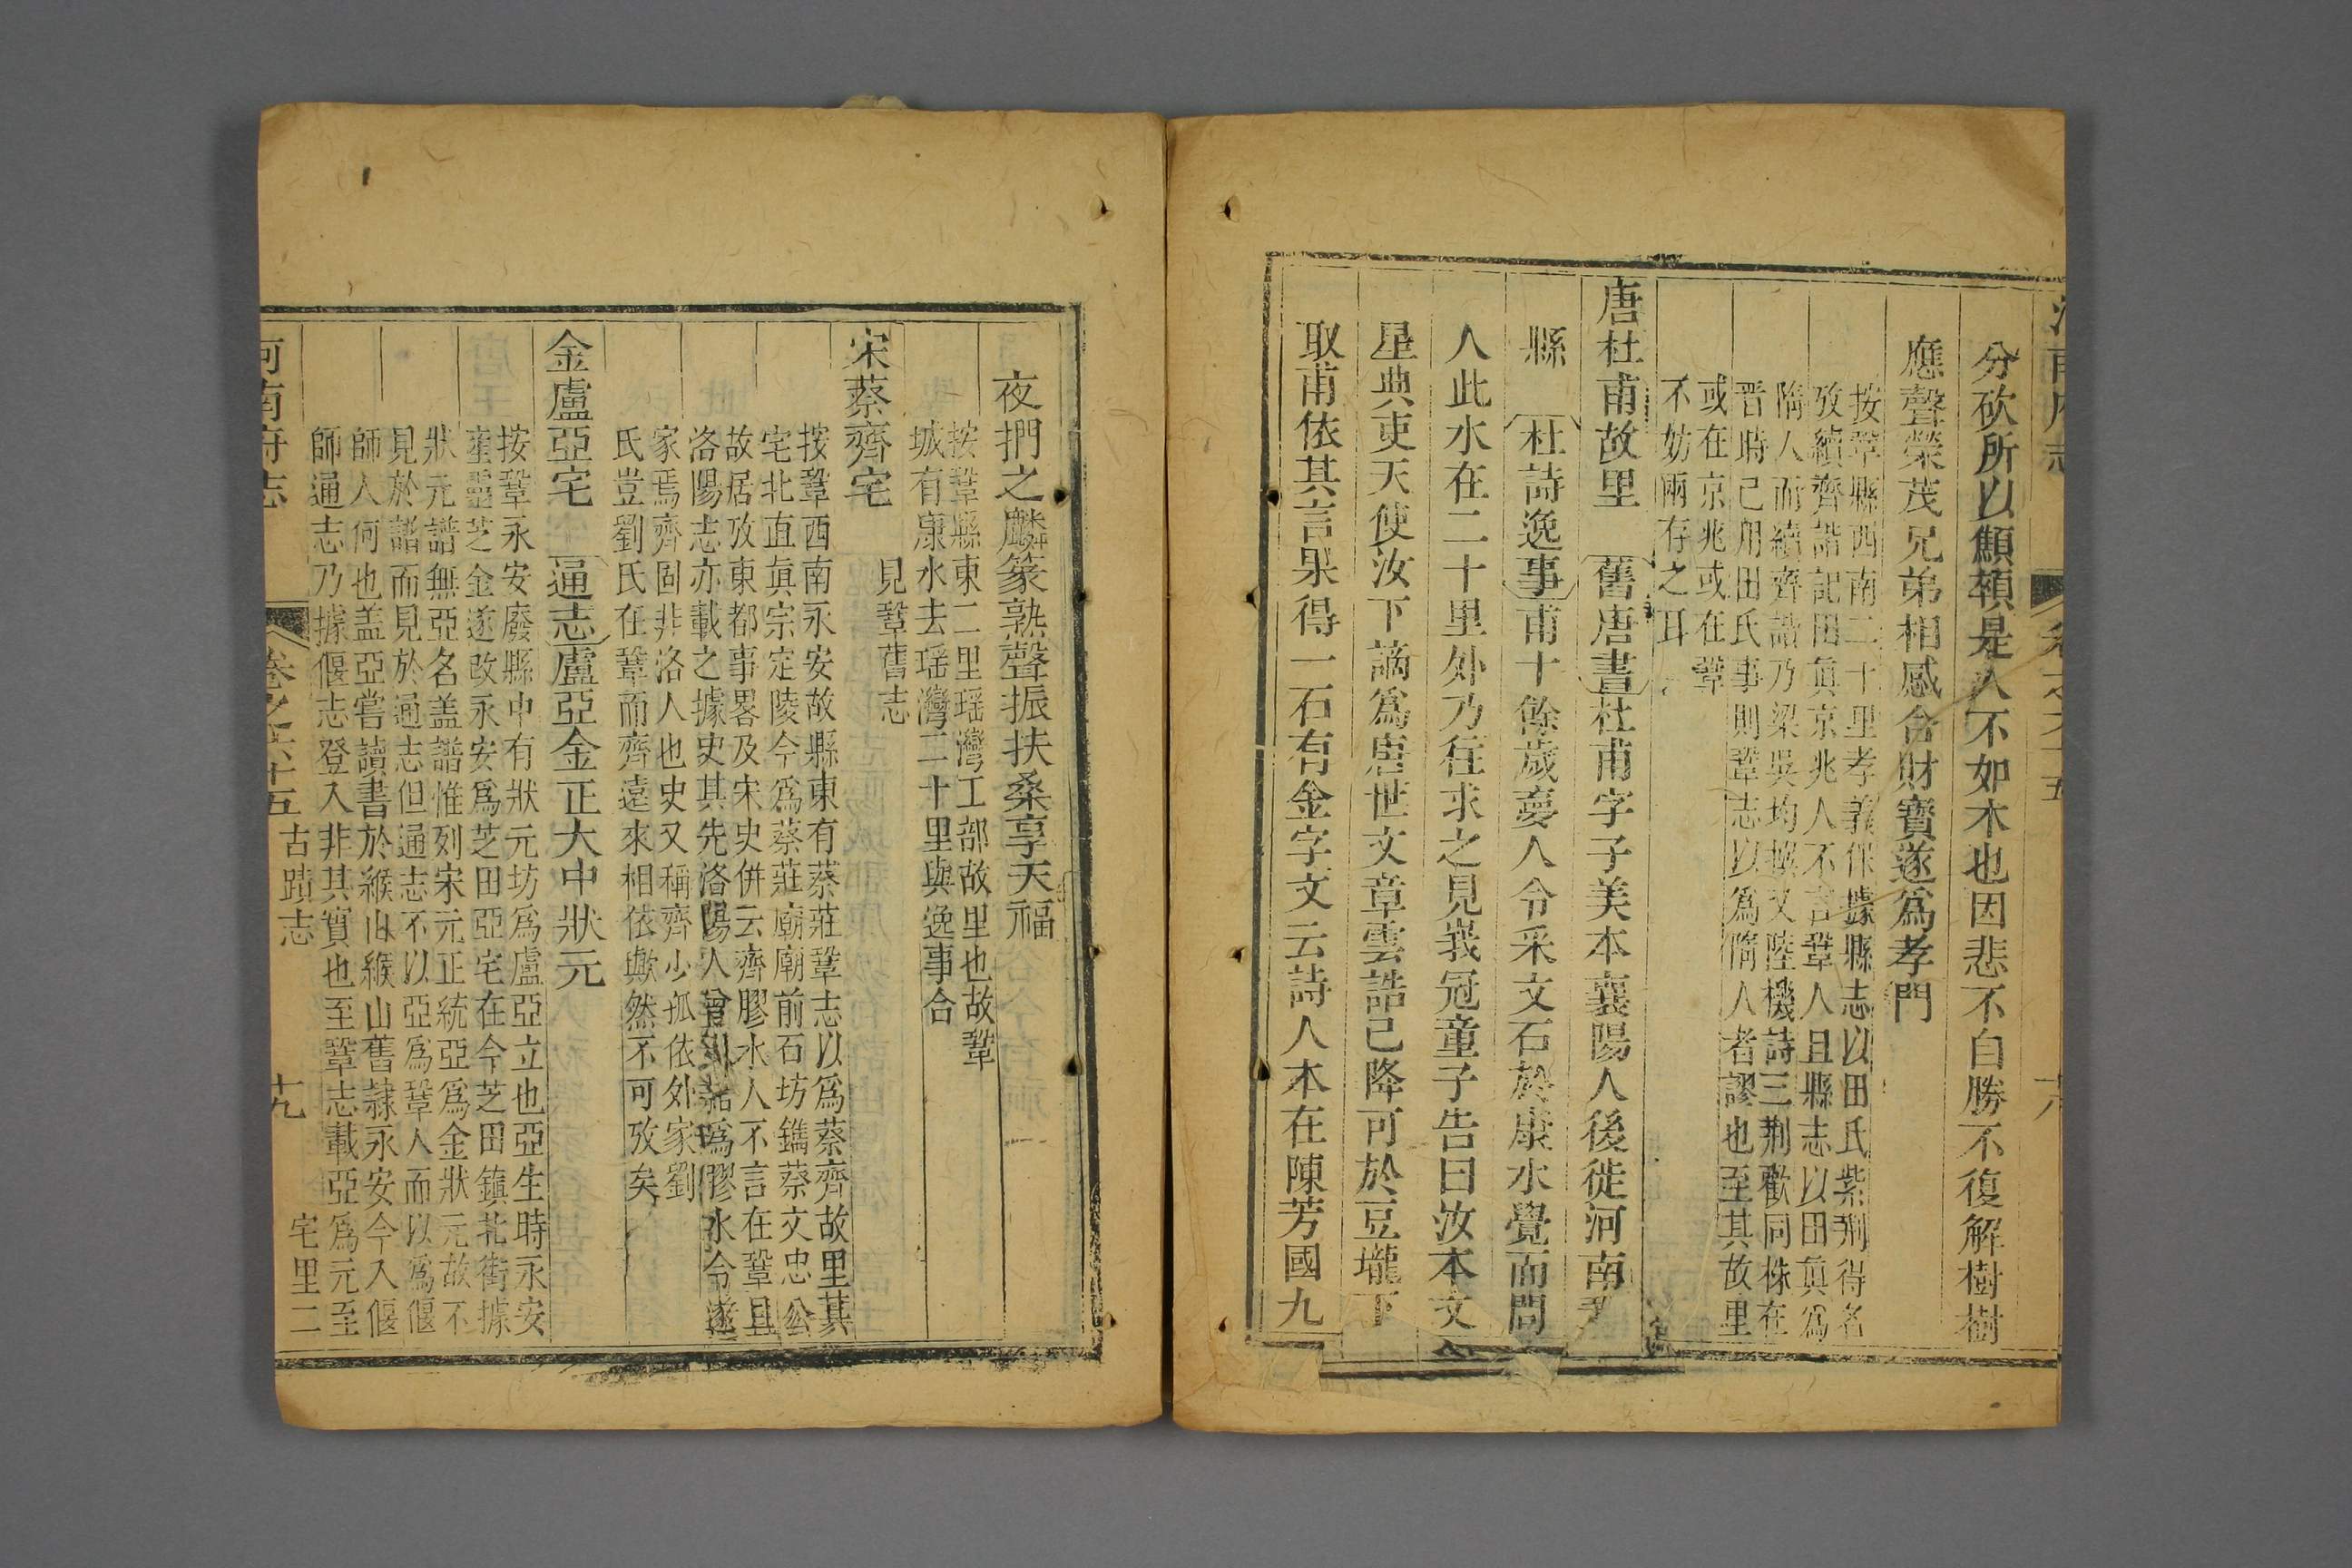 分砍所以顦頓是人不如木也因悲不自勝不復解樹樹
應聲榮茂兄弟相感合財寳遂爲孝門
按鞏縣西南二十里孝義保據縣志以田氏紫荆得名
攷續齊諧記田真京兆人不言鞏人且縣志以田真爲
隋人而續齊諧乃梁吳均撰又陸機詩三荆歡同株在
晋時已用田氏事則鞏志以爲隋人者謬也至其故里
或在京兆或在鞏
不妨兩存之耳
唐杜甫故里 舊唐書杜甫字子美本襄陽人後徙河南
縣 杜詩逸事甫十餘歲夢人令采文石於康水覺而問
人此水在二十里外乃徃求之見峩冠童子告曰汝本文
星典吏天使汝下謫爲唐世文章雲誥已降可於豆壠下
取甫依其言果得一石有金字文云詩人本在陳芳國九
夜捫之麟篆熟聲振扶桑享天福
按鞏縣東二里瑶灣工部故里也故鞏
城有康水去瑶灣二十里與逸事合
見鞏舊志
宋蔡齊宅
按鞏西南永安故縣東有蔡莊鞏志以爲蔡齊故里其
宅北直眞宗定陵今爲蔡莊廟廟前石坊鐫蔡文忠公
故居攷東都事畧及宋史併云齊膠水人不言在鞏且
洛陽志亦載之據史其先洛陽人曾祖綰爲膠水令遂
家焉齊固非洛人也史又稱齊少孤依外家劉
氏豈劉氏在鞏而齊遠來相依歟然不可攷矣
金盧亞宅 通志盧亞金正大中狀元
按鞏永安廢縣中有狀元坊爲盧亞立也亞生時永安
產靈芝金遂改永安爲芝田亞宅在今芝田鎮北街據
狀元譜無亞名盖譜惟列宋元正統亞爲金狀元故不
見於譜而見於通志但通志不以亞爲鞏人而以爲偃
師人何也盖亞嘗讀書於緱山緱山舊隷永安今入偃
師通志乃據偃志登入非其實也至鞏志載亞爲元至
河南府志 卷之六十五 古蹟志 宅里二 十九